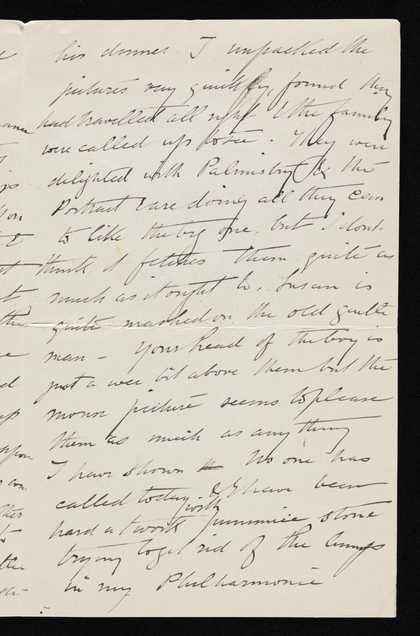 his dinner. I unpacked the
pictures very quickly, found they
had travelled all right & the family
were called up to see. They were
delighted with Palmistry & the
Portrait & are doing all they can
to like the big one. but I dont
think it fetches them quite as
much as it ought to. Susan is
quite mashed on the old gentle
man – Your head of the boy is
just a wee bit above them but the
picture seems to please
them as much as anything
I have shown. No one has
called today & I have been
hard at work with pummice stone
trying to get rid of the lumps
in my Philharmonic